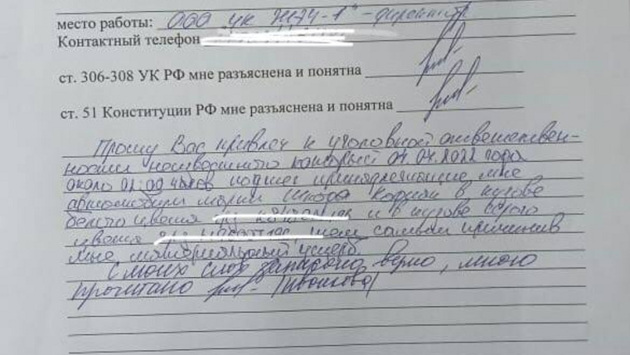 место работы: ООО УК ЖЭУ-1" - директор
Контактный телефон
ст. 306-308 УК РФ мне разъяснена и понятна
ст. 51 Конституции РФ мне разъяснена и понятна
Прошу Вас привлеч к уголовной ответствен-
ности неизвестного который 04.04.2022 года
около 01:00 часов поджег принадлежащие мне
автомобили марки Шкода Кодиак в кузове
белого цвета и в кузове серого
цвета тем самым причинив
мне материальный ущерб.
С моих слов записано верно, мною
прочитано